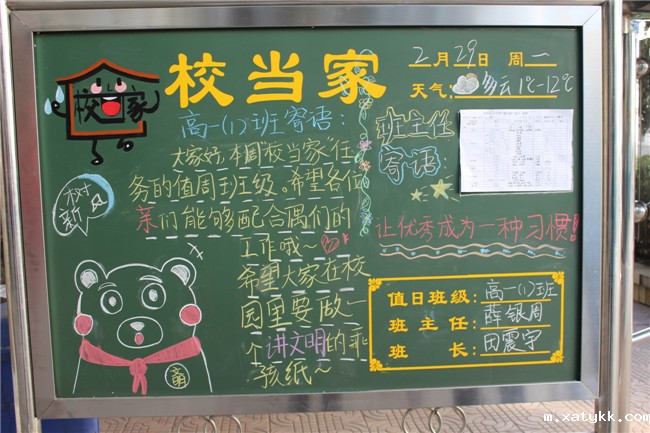 校当家
校当家
2月29日 周一
天气:多云1℃-12℃
高一(1)班寄语:
大家好,本周"校当家"任
务的值周班级。希望各位
亲们能够配合偶们的
工作哦~
希望大家在校
园里要做一
个讲文明的乖
孩纸~
树
新风
萌
班主任
寄语:
让优秀成为一种习惯!
值日班级:高一(1)班
班主任:薛银周
班长:田震宇
m.xatykk.com